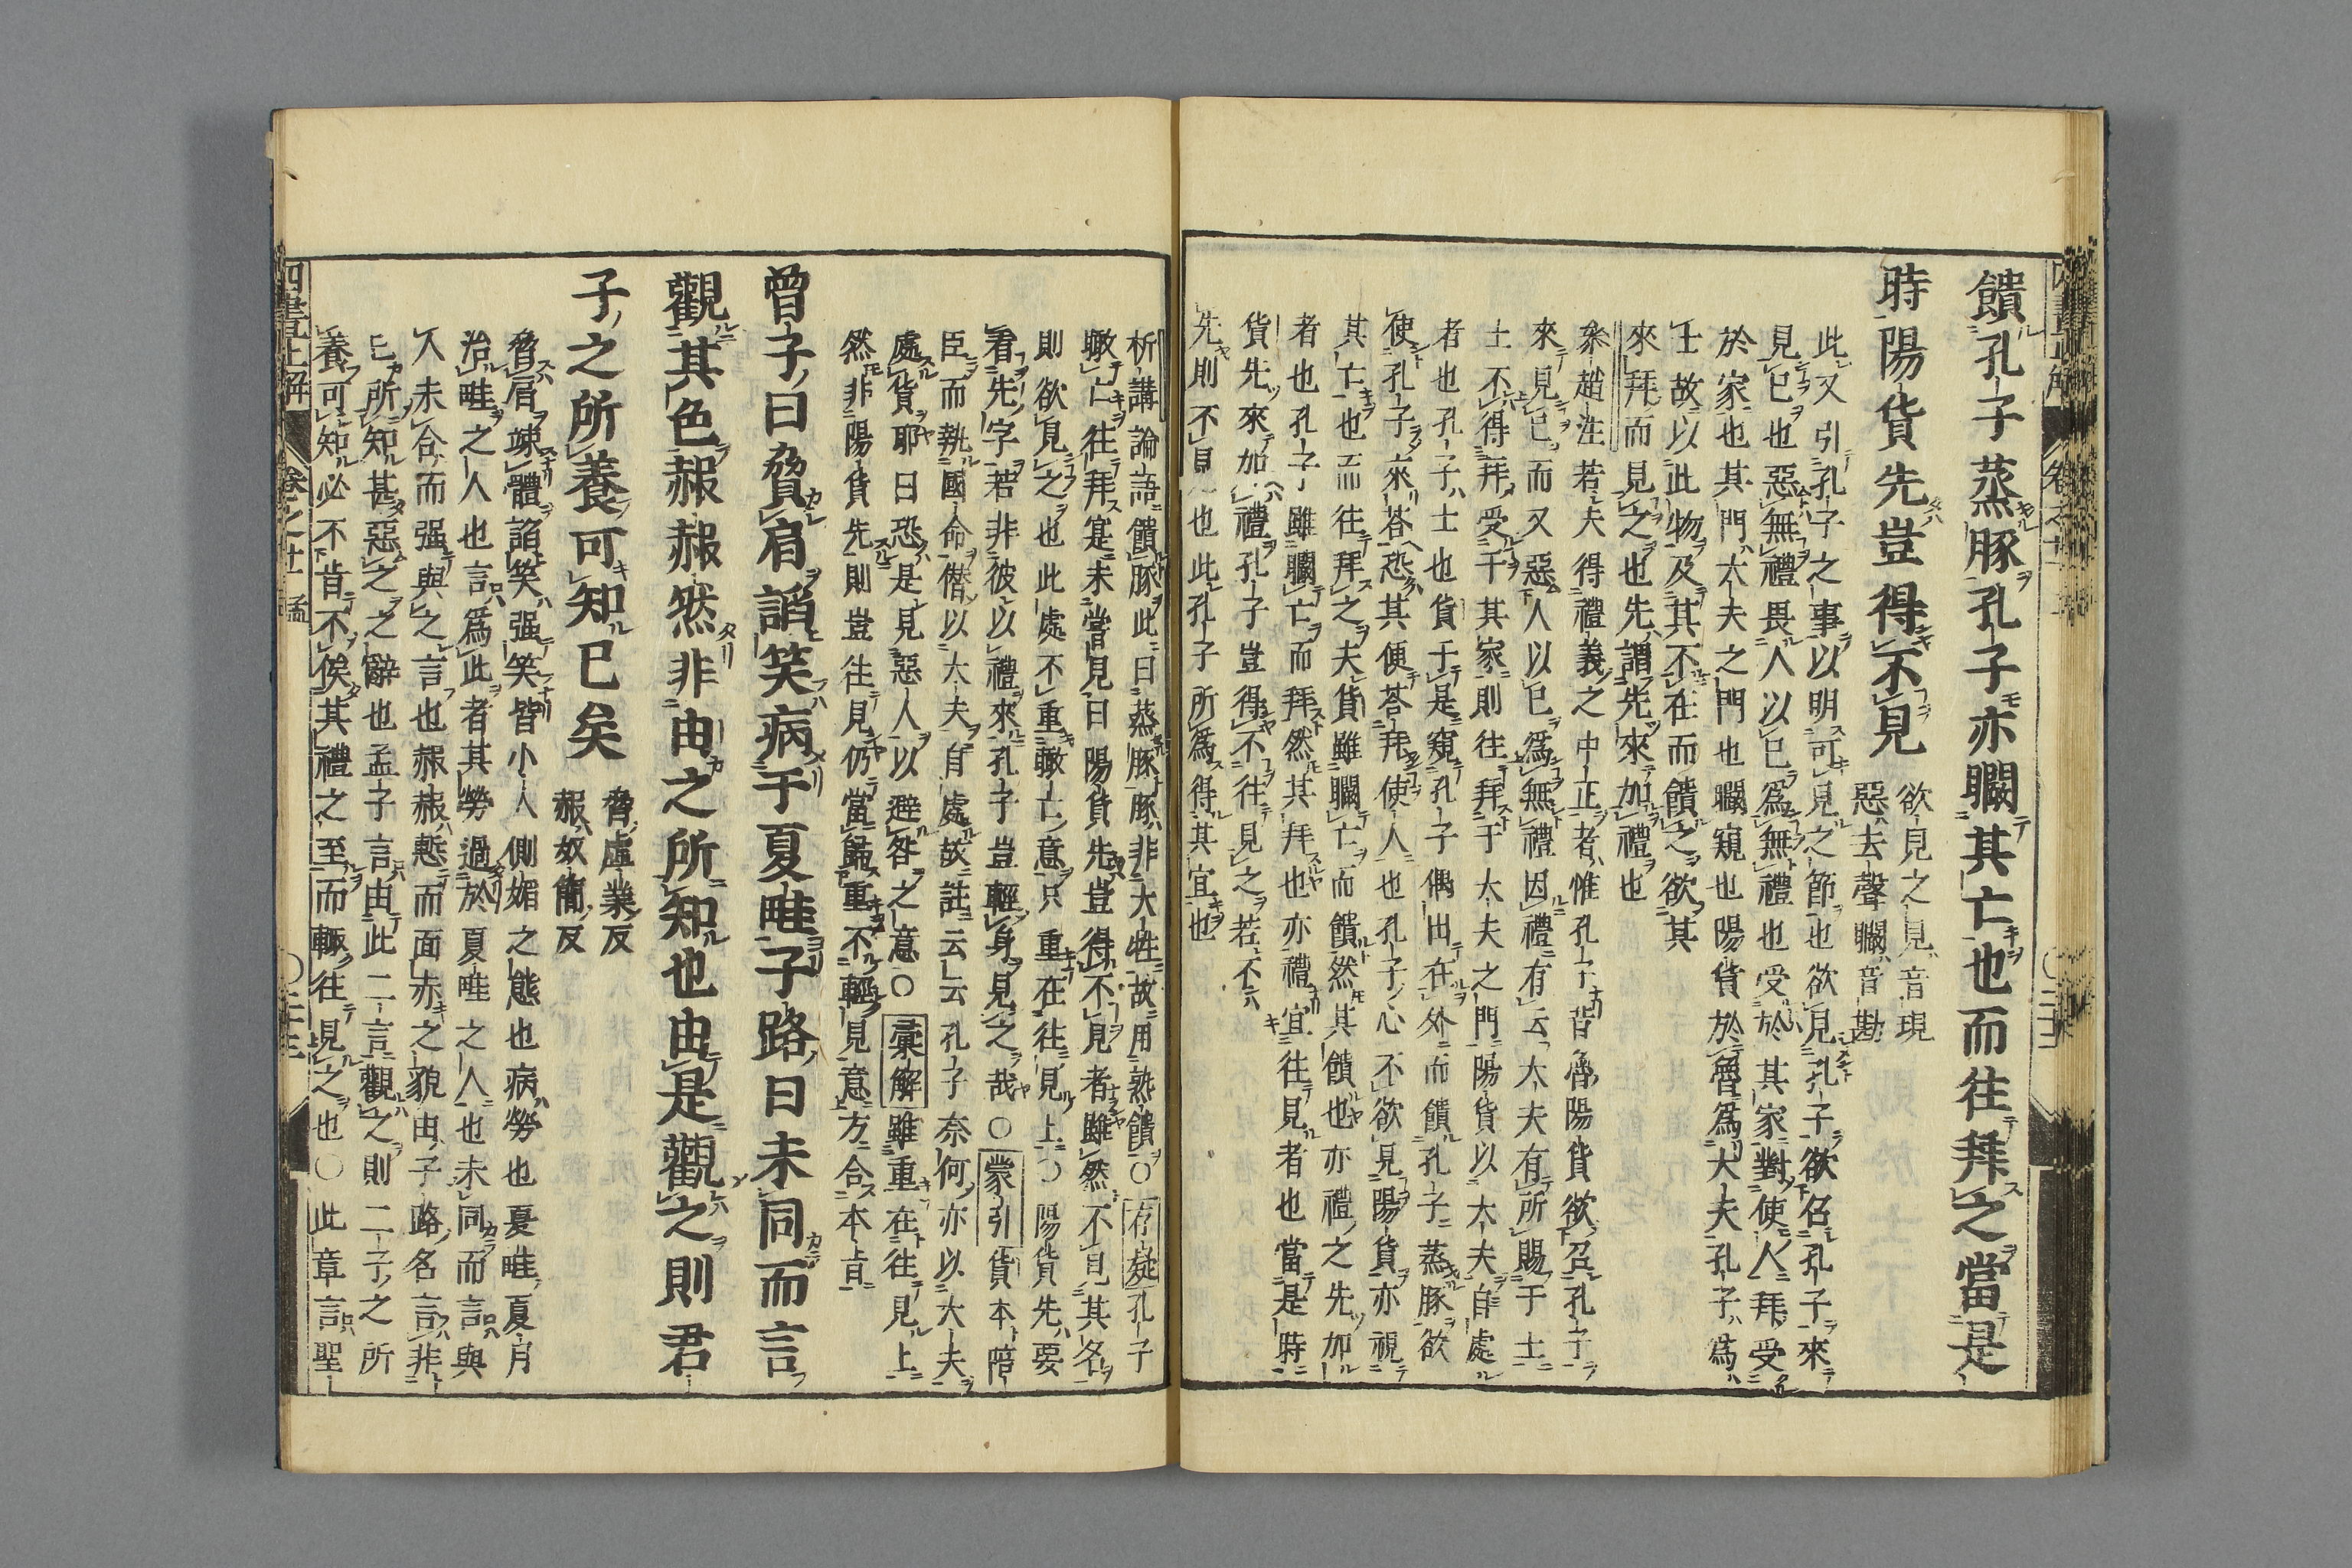 饋孔子蒸豚孔子亦矙其亡也而往拜之當是
時陽貨先豈得不見
欲見之見音現
惡去聲矙音勘
此又引孔子之事以明可見之節也欲見孔子欲召孔子來
見已也惡無禮畏人以已爲無禮也受於其家對使人拜受
於家也其門大夫之門也矙窺也陽貨於魯爲大夫孔子爲
士故以此物及其不在而饋之欲其
來拜而見之也先謂先來加禮也
叅趙注若夫得禮義之中正者惟孔子昔魯陽貨欲召孔子
來見已而又惡人以已爲無禮因禮有云大夫有所賜于士
士不得拜受于其家則往拜于大夫之門陽貨以大夫自處
者也孔子士也貨于是窺孔子偶出在外而饋孔子蒸豚欲
使孔子來答恐其便荅拜使人也孔子心不欲見陽貨亦視
其亡也而往拜之夫貨雖矙亡而饋然其饋也亦禮之先加
者也孔子雖矙亡而拜然其拜也亦禮宜往見者也當是時
貨先來加禮孔子豈得不往見之若不
先則不見也此孔子所爲得其宜也
析講論語饋豚此曰蒸豚豚非大牲故用熟饋○存疑孔子
瞰亡往拜寔未嘗見曰陽貨先豈得不見者雖然不見其名
則欲見之也此處不重瞰亡意只重在往見上○陽貨先要
看先字若非彼以禮來孔子豈輕身見之哉○蒙引貨本陪
臣而執國命僣以大夫自處故註云云孔子奈何亦以大夫
處貨耶曰恐是見惡人以避咎之意○彙解雖重在往見上
然非陽貨先則豈往見仍當歸重不輕見意方合本㫖
曾子曰脅肩諂笑病于夏畦子路曰未同而言
觀其色赧赧然非由之所知也由是觀之則君
子之所養可知已矣
脅虛業反
赧奴簡反
脅肩竦體諂笑强笑皆小人側媚之態也病勞也夏畦夏月
治畦之人也言爲此者其勞過於夏畦之人也未同而言與
人未合而强與之言也赧赧慙而面赤之貌由子路名言非
己所知甚惡之之辭也孟子言由此二言觀之則二子之所
養可知必不肯不俟其禮之至而輒往見之也○此章言聖
四書正解 卷之廿 孟 ○二十三